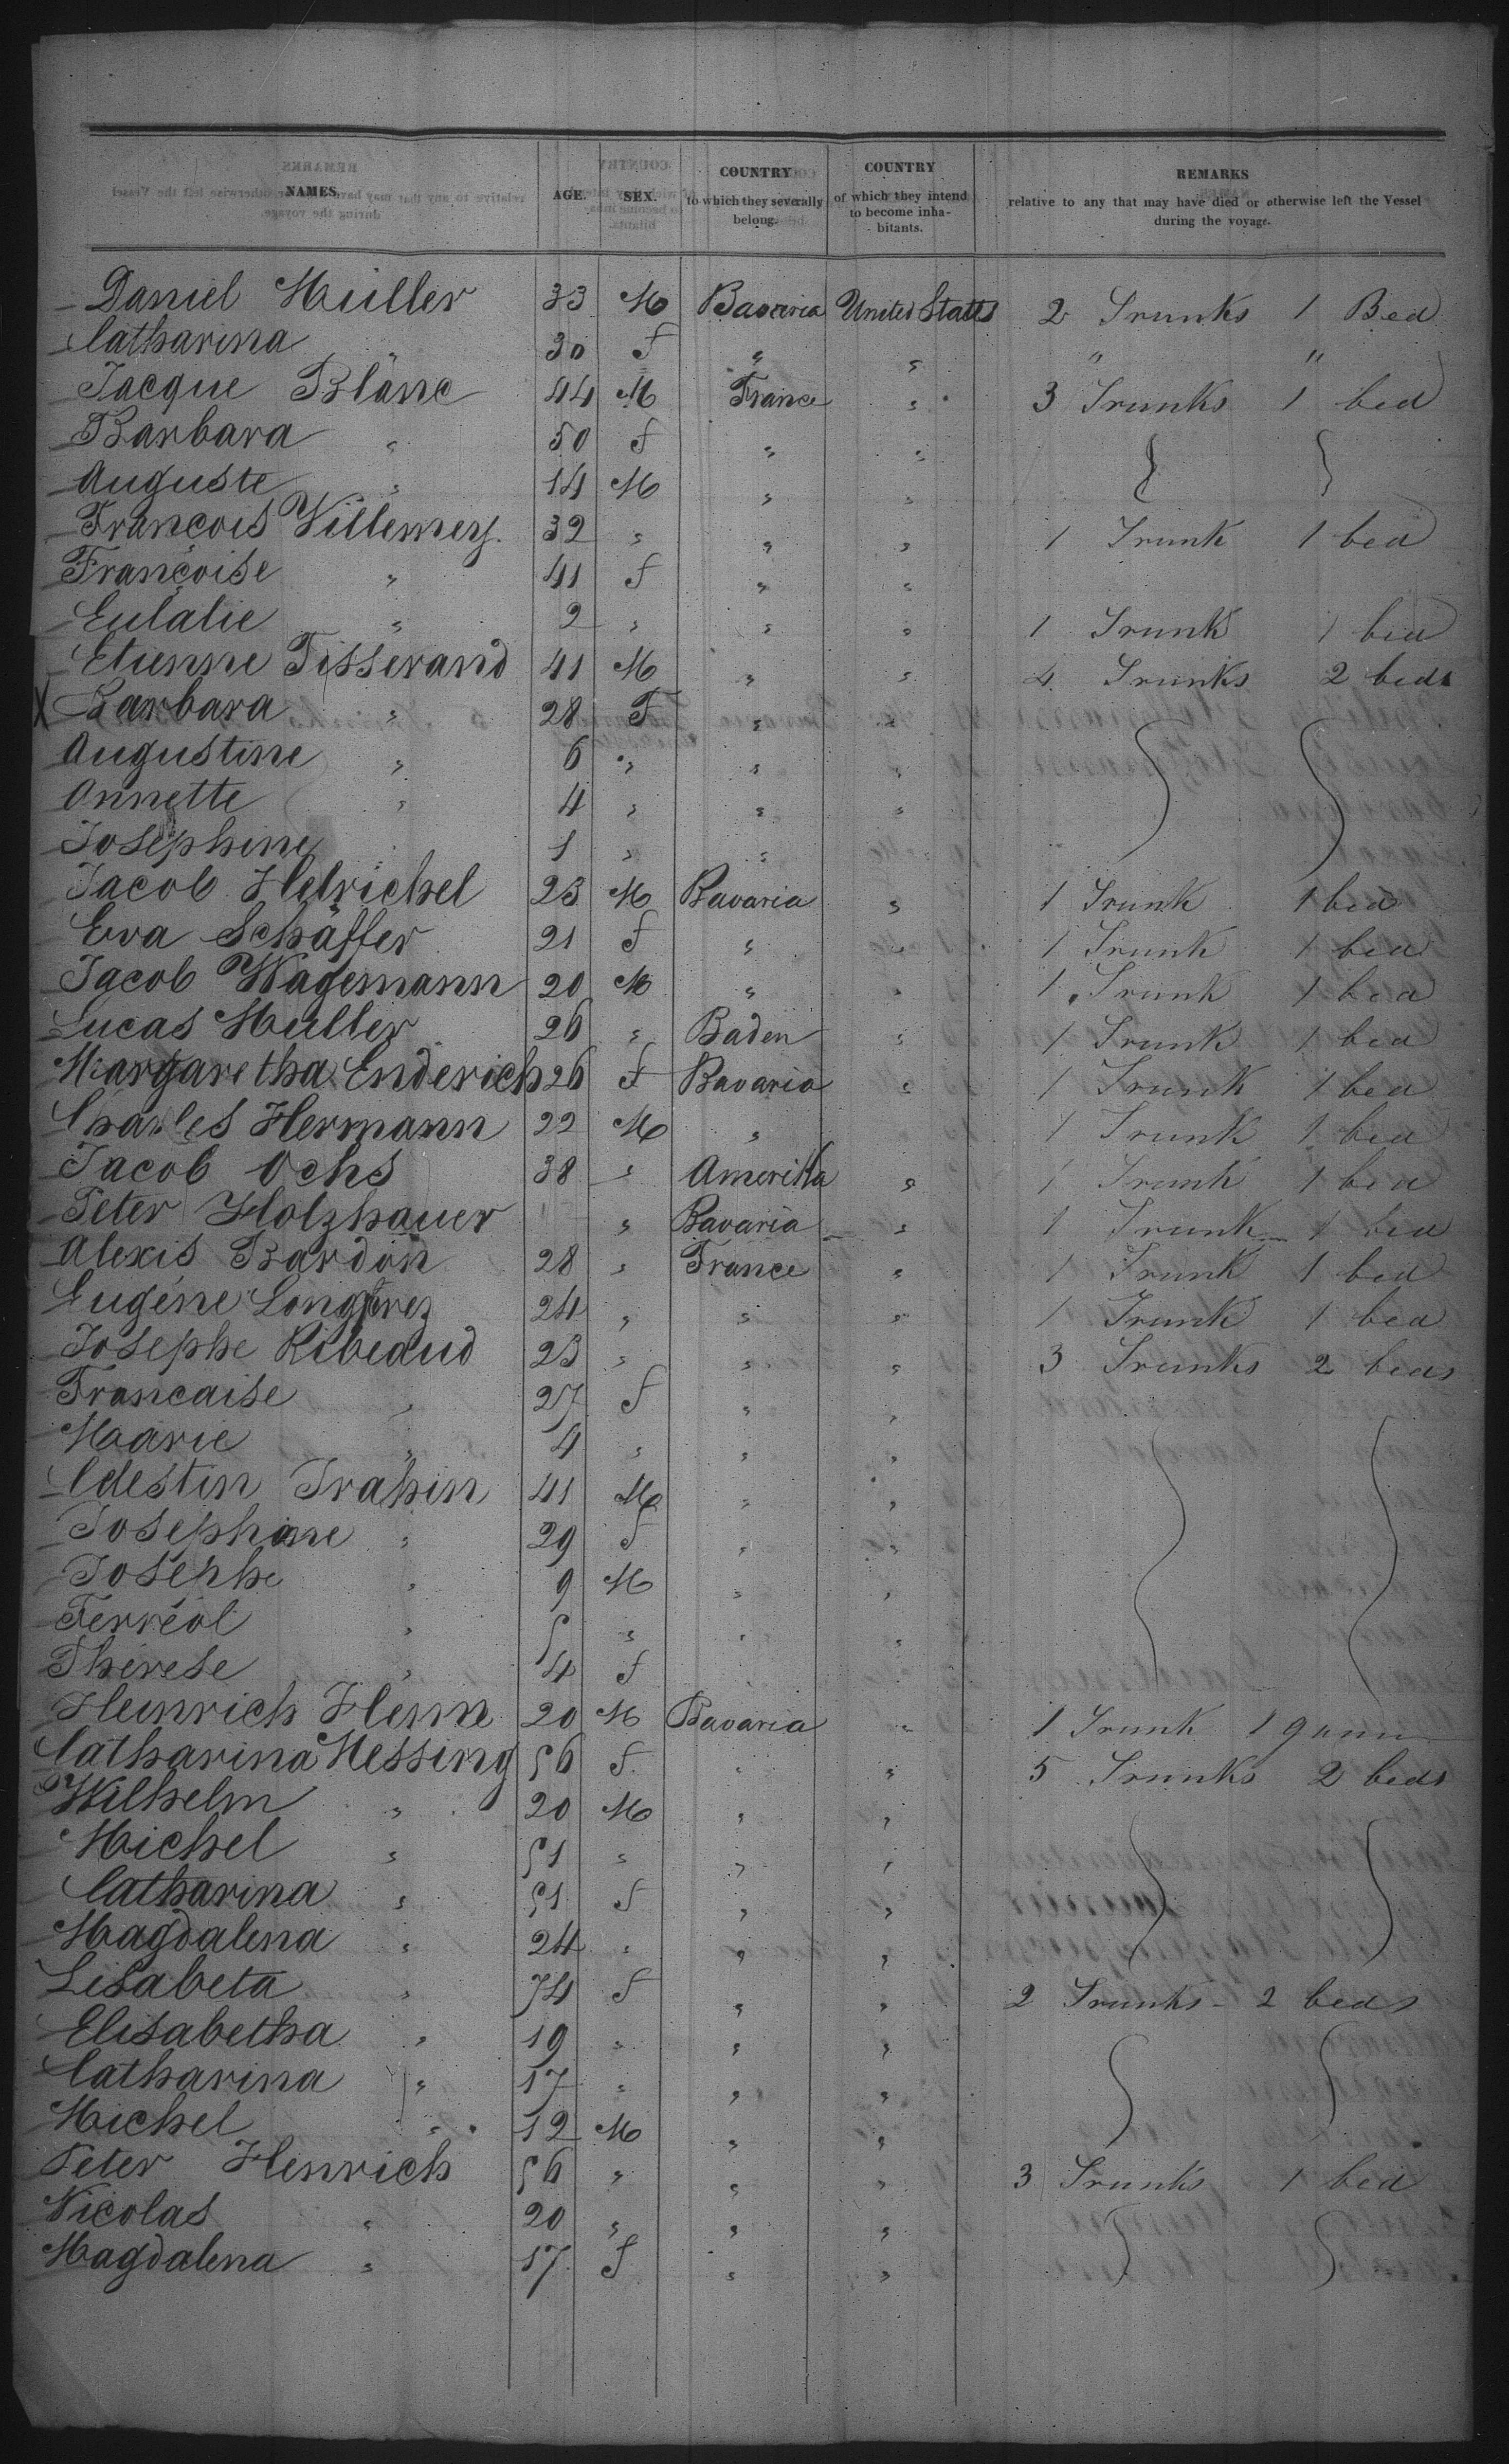 NAMES. AGE. SEX. COUNTRY to which they severally belong. COUNTRY of which they intend to become inha-bitants. REMARKS relative to any that may have died or otherwise left the Vessel during the voyage.
Daniel Müller 33 M Bavaria United States 2 Trunks 1 Bed
Catharina 30 f " " " "
Jacque Blanc 44 M France " 3 Trunks 1 bed
Barbara " 50 f " "
Auguste " 14 M " "
François Villemey. 32 " " " 1 Trunk 1 bed
Françoise " 41 f " "
Eulalie " 2 " " " 1 Trunk 1 bed
Etienne Tisserand 41 M " " 4 Trunks 2 beds
X Barbara " 28 F " "
Augustine " 6 " " "
Annette " 4 " " "
Josephine 1 " " "
Jacob Helrichel 23 M Bavaria " 1 Trunk 1 bed
Eva Schäffer 21 f " " 1 Trunk 1 bed
Jacob Wagemann 20 M " " 1 Trunk 1 bed
Lucas Muller 26 " Baden " 1 Trunk 1 bed
Margaretha Enderich 26 f Bavaria " 1 Trunk 1 bed
Charles Hermann 22 M " 1 Trunk 1 bed
Jacob Ochs 38 " Amerikka " 1 Trunk 1 bed
Peter Holzhauer " Bavaria " 1 Trunk 1 bed
Alexis Bardon 28 " France " 1 Trunk 1 bed
Eugéne 24 " " " 1 Trunk 1 bed
Josephe Ribeaud 23 " " " 3 Trunks 2 beds
Francaise " 27 f " "
Marie " 4 " " "
Celestin Trahin 41 M " "
Josephine " 29 f " "
Josephe " 9 M " "
Ferréol " 5 " " "
Thérese " 4 f " "
Heinrich Henn 20 M Bavaria " 1 Trunk 1
Catharina Messing 56 f. " " 5 Trunks 2 beds
Wilhelm " 20 M " "
Michel " 51 " " "
Catharina " 51 f " "
Magdalena " 24 " " "
Lisabeta " 74 f " " 2 Trunks - 2 beds
Elisabetha " 19 " " "
Catharina " 17 " " "
Michel " 12 M " "
Peter Henrich 56 " " " 3 Trunks 1 bed
Nicolas " 20 " " "
Magdalena " 17 f " "